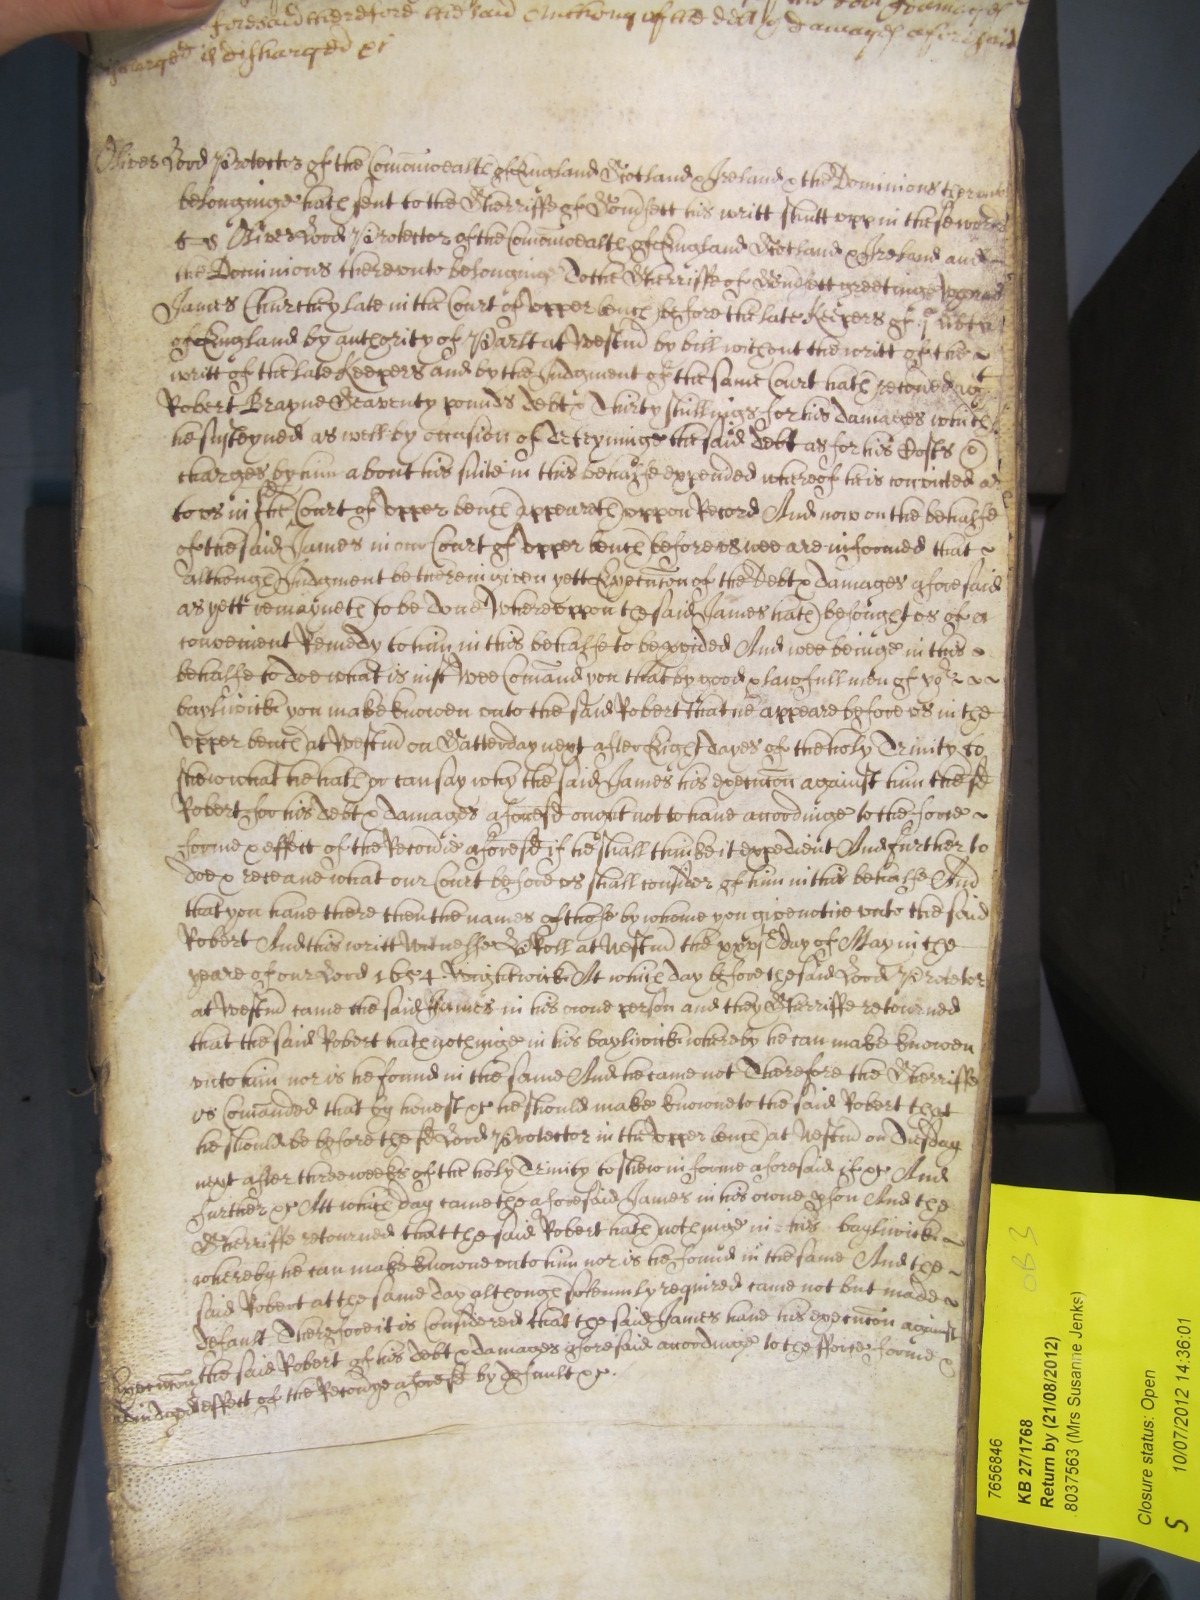 aforesaid Therefore the said Anthony of the debt & damages aforesaid
is discharged &c
Oliver Lord Protector of the Comonwealth of England Scotland & Ireland & the Dominions thereunto
belonginge hath sent to the Sherriffe of Somsett his writt shutt upp in these words
ss Oliver Lord Protector of the Comonwealth of England Scotland & Ireland and
the Dominions thereunto belonginge To the Sherriffe of Somsett greetinge Whereas
James Churchey late in the Court of upper bench before the late Keepers of ye libtie
of England by authority of Parlt at Westm by bill without the writt of the
writt of the late Keepers and by the Judgment of the same Court hath recoved agt
Robert Brayne Seaventy pounds debt & Thirty shillings for his damages which
he susteyned as well by occasion of deteyninge the said debt as for his Costs &
charges by him about his suite in this behalfe expended whereof he is convicted as
to us in the Court of upper bench appeareth uppon Record And now on the behalfe
of the said James in our Court of upper bench before us wee are informed that
although Judgment be therein given yett Execucon of the Debt & damages aforesaid
as yett remayneth to be done Whereuppon the said James hath besought us of a
convenient Remedy to him in this behalfe to be pvided And wee beinge in this
behalfe to doe what is just Wee Comand you that by good & lawfull men of yor
bayliwick you make knowen unto the said Robert that he appeare before us in the
upper bench at Westm on Satterday next after Eight dayes of the holy Trinity to
shew what he hath or can say why the said James his execucon against him the sd
Robert for his debt & damages aforesd ought not to have accordinge to the force
forme & effect of the Recovie aforesd if he shall thinke it expedient And further to
doe & receave what our Court before us shall consider of him in this behalfe And
that you have there then the names of those by whome you give notice unto the said
Robert And this writt Witnesse H Rolle at Westm the xxvjth day of May in the
yeare of our Lord 1654 Wightwick At which day before the said Lord Protector
at Westm came the said James in his owne person and the Sherriffe retourned
that the said Robert hath nothinge in his bayliwick whereby he can make knowen
unto him nor is he found in the same And he came not Therefore the Sherriffe
is Comanded that by honest &c he should make knowne to the said Robert that
he should be before the sd Lord Protector in the upper bench at Westm on Tuesday
next after three weeks of the holy Trinity to shew in forme aforesaid if &c And
further &c Att which day came the aforesaid James in his owne pson And the
Sherriffe retourned that the said Robert hath nothinge in his bayliwick
whereby he can make knowne unto him nor is he found in the same And the
said Robert at the same day although solemnly required came not but made
default Therefore it is Considered that the said James have his execucon against
Execucon the said Robert of his debt & damages aforesaid accordinge to the force forme &
adiudged effect of the Recovie aforesd by default &c.
7656846
KB 27/1768
Return by (21/08/2012)
8037563 (Mrs Susanne Jenks)
Closure status: Open
10/07/2012 14:36:01
S
OB 3